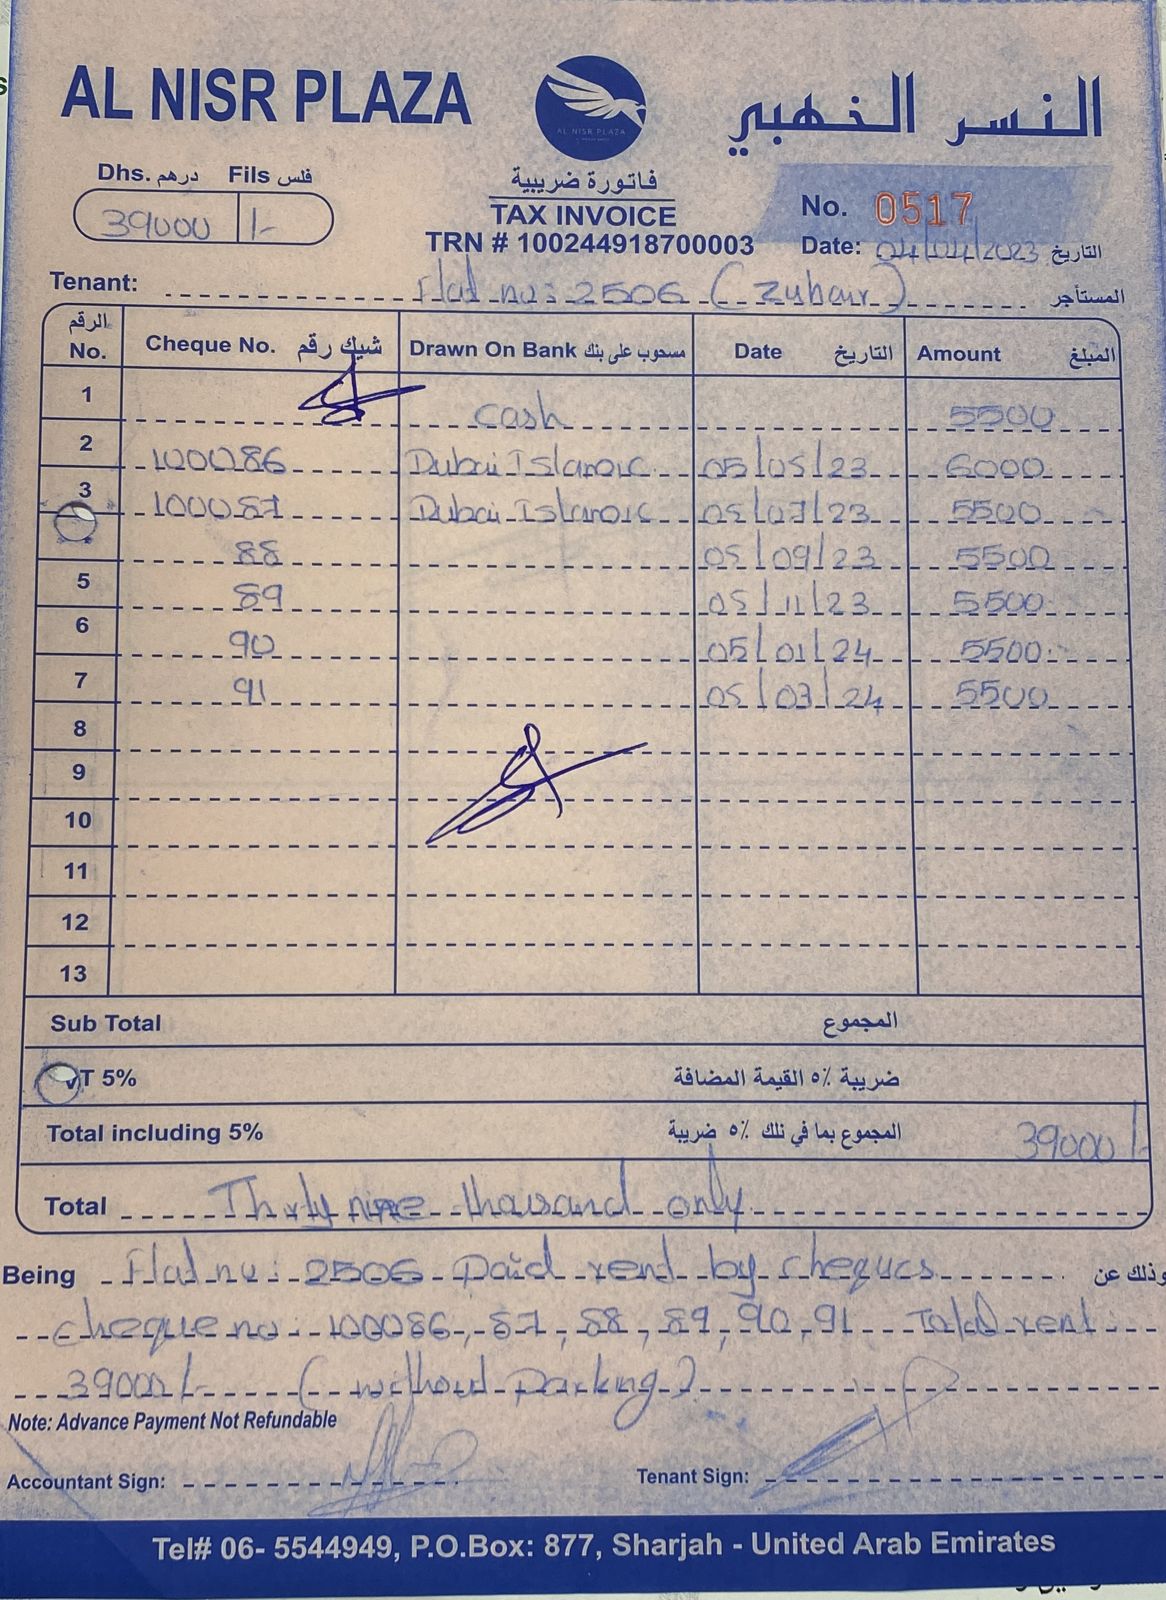 AL NISR PLAZA
النسر الذهبي
AL NISR PLAZA
Dhs. درهم Fils فلس
39000 /-
فاتورة ضريبية
TAX INVOICE
TRN # 100244918700003
No. 0517
Date: 04/04/2023 التاريخ
Tenant: Flat no: 2506 (Zuhair) المستأجر
الرقم No. Cheque No. شيك رقم Drawn On Bank مسحوب على بنك Date التاريخ Amount المبلغ
1 Cash 5500
2 100086 Dubai Islamic 05/05/23 6000
3 100087 Dubai Islamic 05/07/23 5500
88 05/09/23 5500
5 89 05/11/23 5500
6 90 05/01/24 5500
7 91 05/03/24 5500
8
9
10
11
12
13
Sub Total المجموع
T 5% ضريبة ٥٪ القيمة المضافة
Total including 5% المجموع بما في تلك ٥٪ ضريبة 39000/-
Total Thirty nine thousand only
Being Flat no: 2506 Paid rent by cheques وذلك عن
cheque no: 100086, 87, 88, 89, 90, 91 Total rent:
39000/- (without parking)
Note: Advance Payment Not Refundable
Accountant Sign: Tenant Sign:
Tel# 06- 5544949, P.O.Box: 877, Sharjah - United Arab Emirates